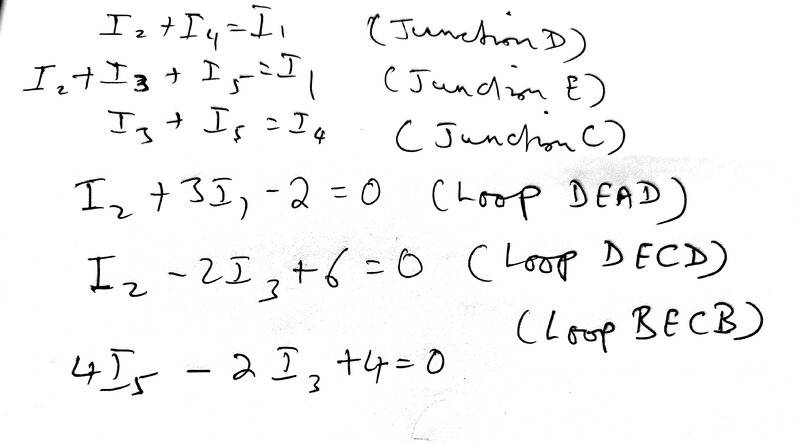 I₂ + I₄ = I₁ (Junction D)
I₂ + I₃ + I₅ = I₁ (Junction E)
I₃ + I₅ = I₄ (Junction C)
I₂ + 3I₁ - 2 = 0 (Loop DEAD)
I₂ - 2I₃ + 6 = 0 (Loop DECD)
(Loop BECB)
4I₅ - 2I₃ + 4 = 0